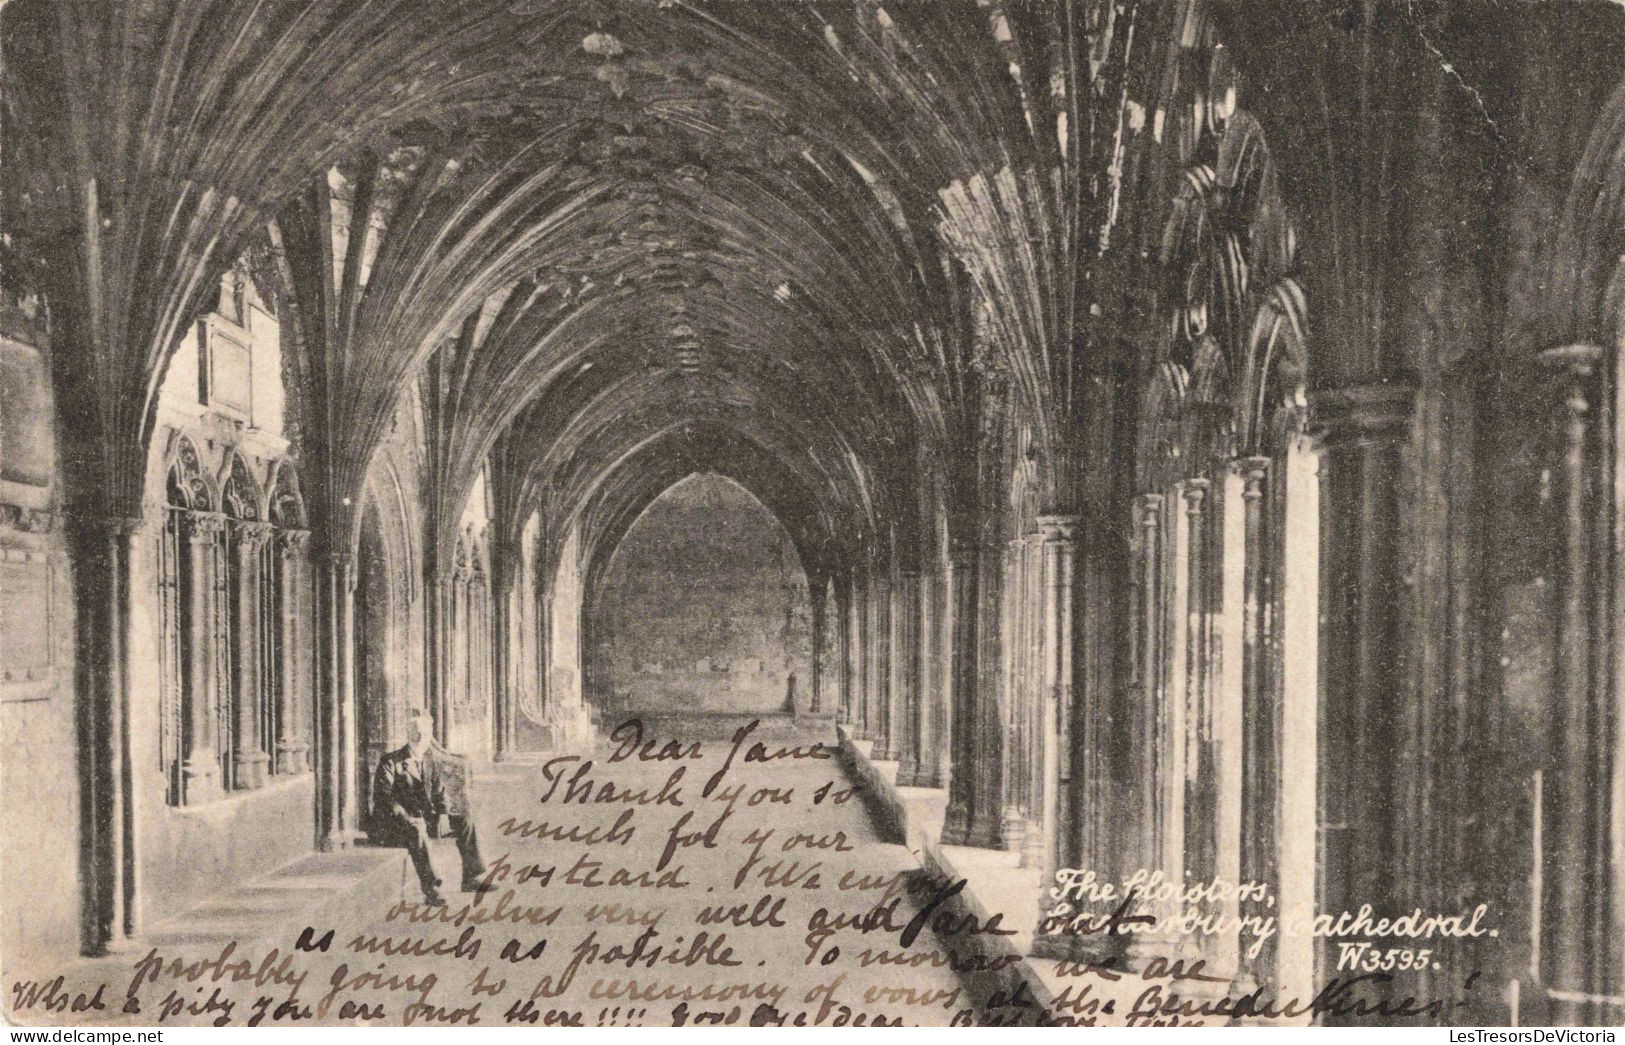 Dear Jane
Thank you so
much for your
postcard. We enjoy
ourselves very well and are out
as much as possible. To morrow we are
probably going to a ceremony of vows at the Benedictines'
What a pity you are not there!!!! Good bye dear. Best love
The Cloisters,
Canterbury Cathedral.
W3595.
LesTresorsDeVictoria